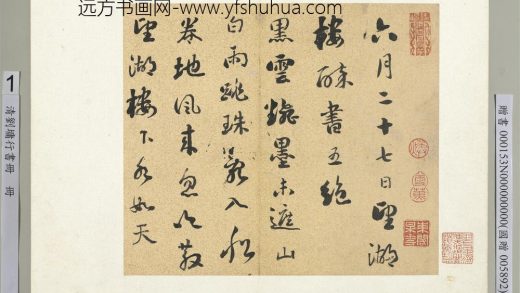 远方书画网-www.yfshuhua.com
贈書 000153N000000000(國贈 005892)
六月二十七日望湖
樓醉書五絕
黑雲翻墨未遮山
白雨跳珠亂入船
卷地風來忽吹散
望湖樓下水如天
1
清劉墉行書冊 冊